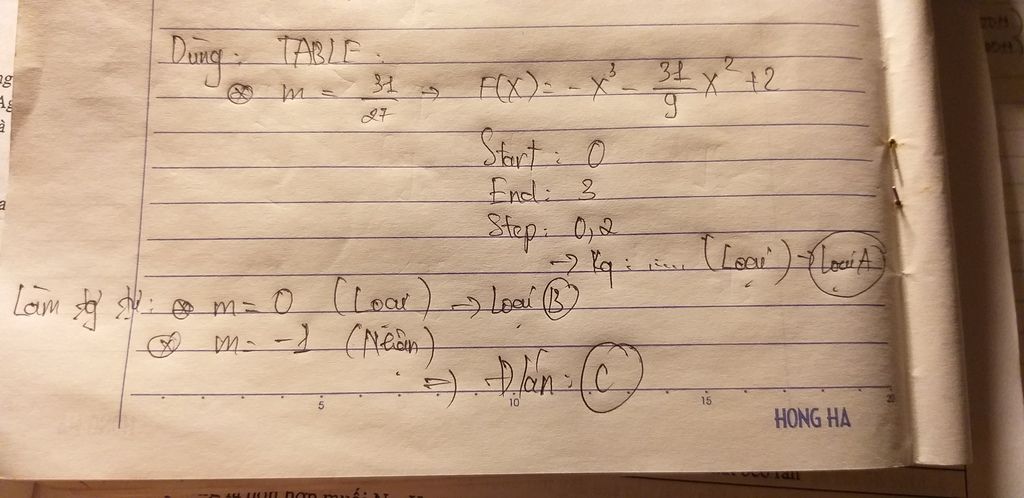 Dùng: TABLE:
⊗ m = 31/27 → F(X) = -X³ - 31/9 X² + 2
Start: 0
End: 3
Step: 0,2
→ Kq: ..... (Loại) → Loại A
Làm tg tự: ⊗ m = 0 (Loại) → Loại B
⊗ m = -1 (Nhận)
⇒ Đ/án: C
5 10 15 20
HONG HA